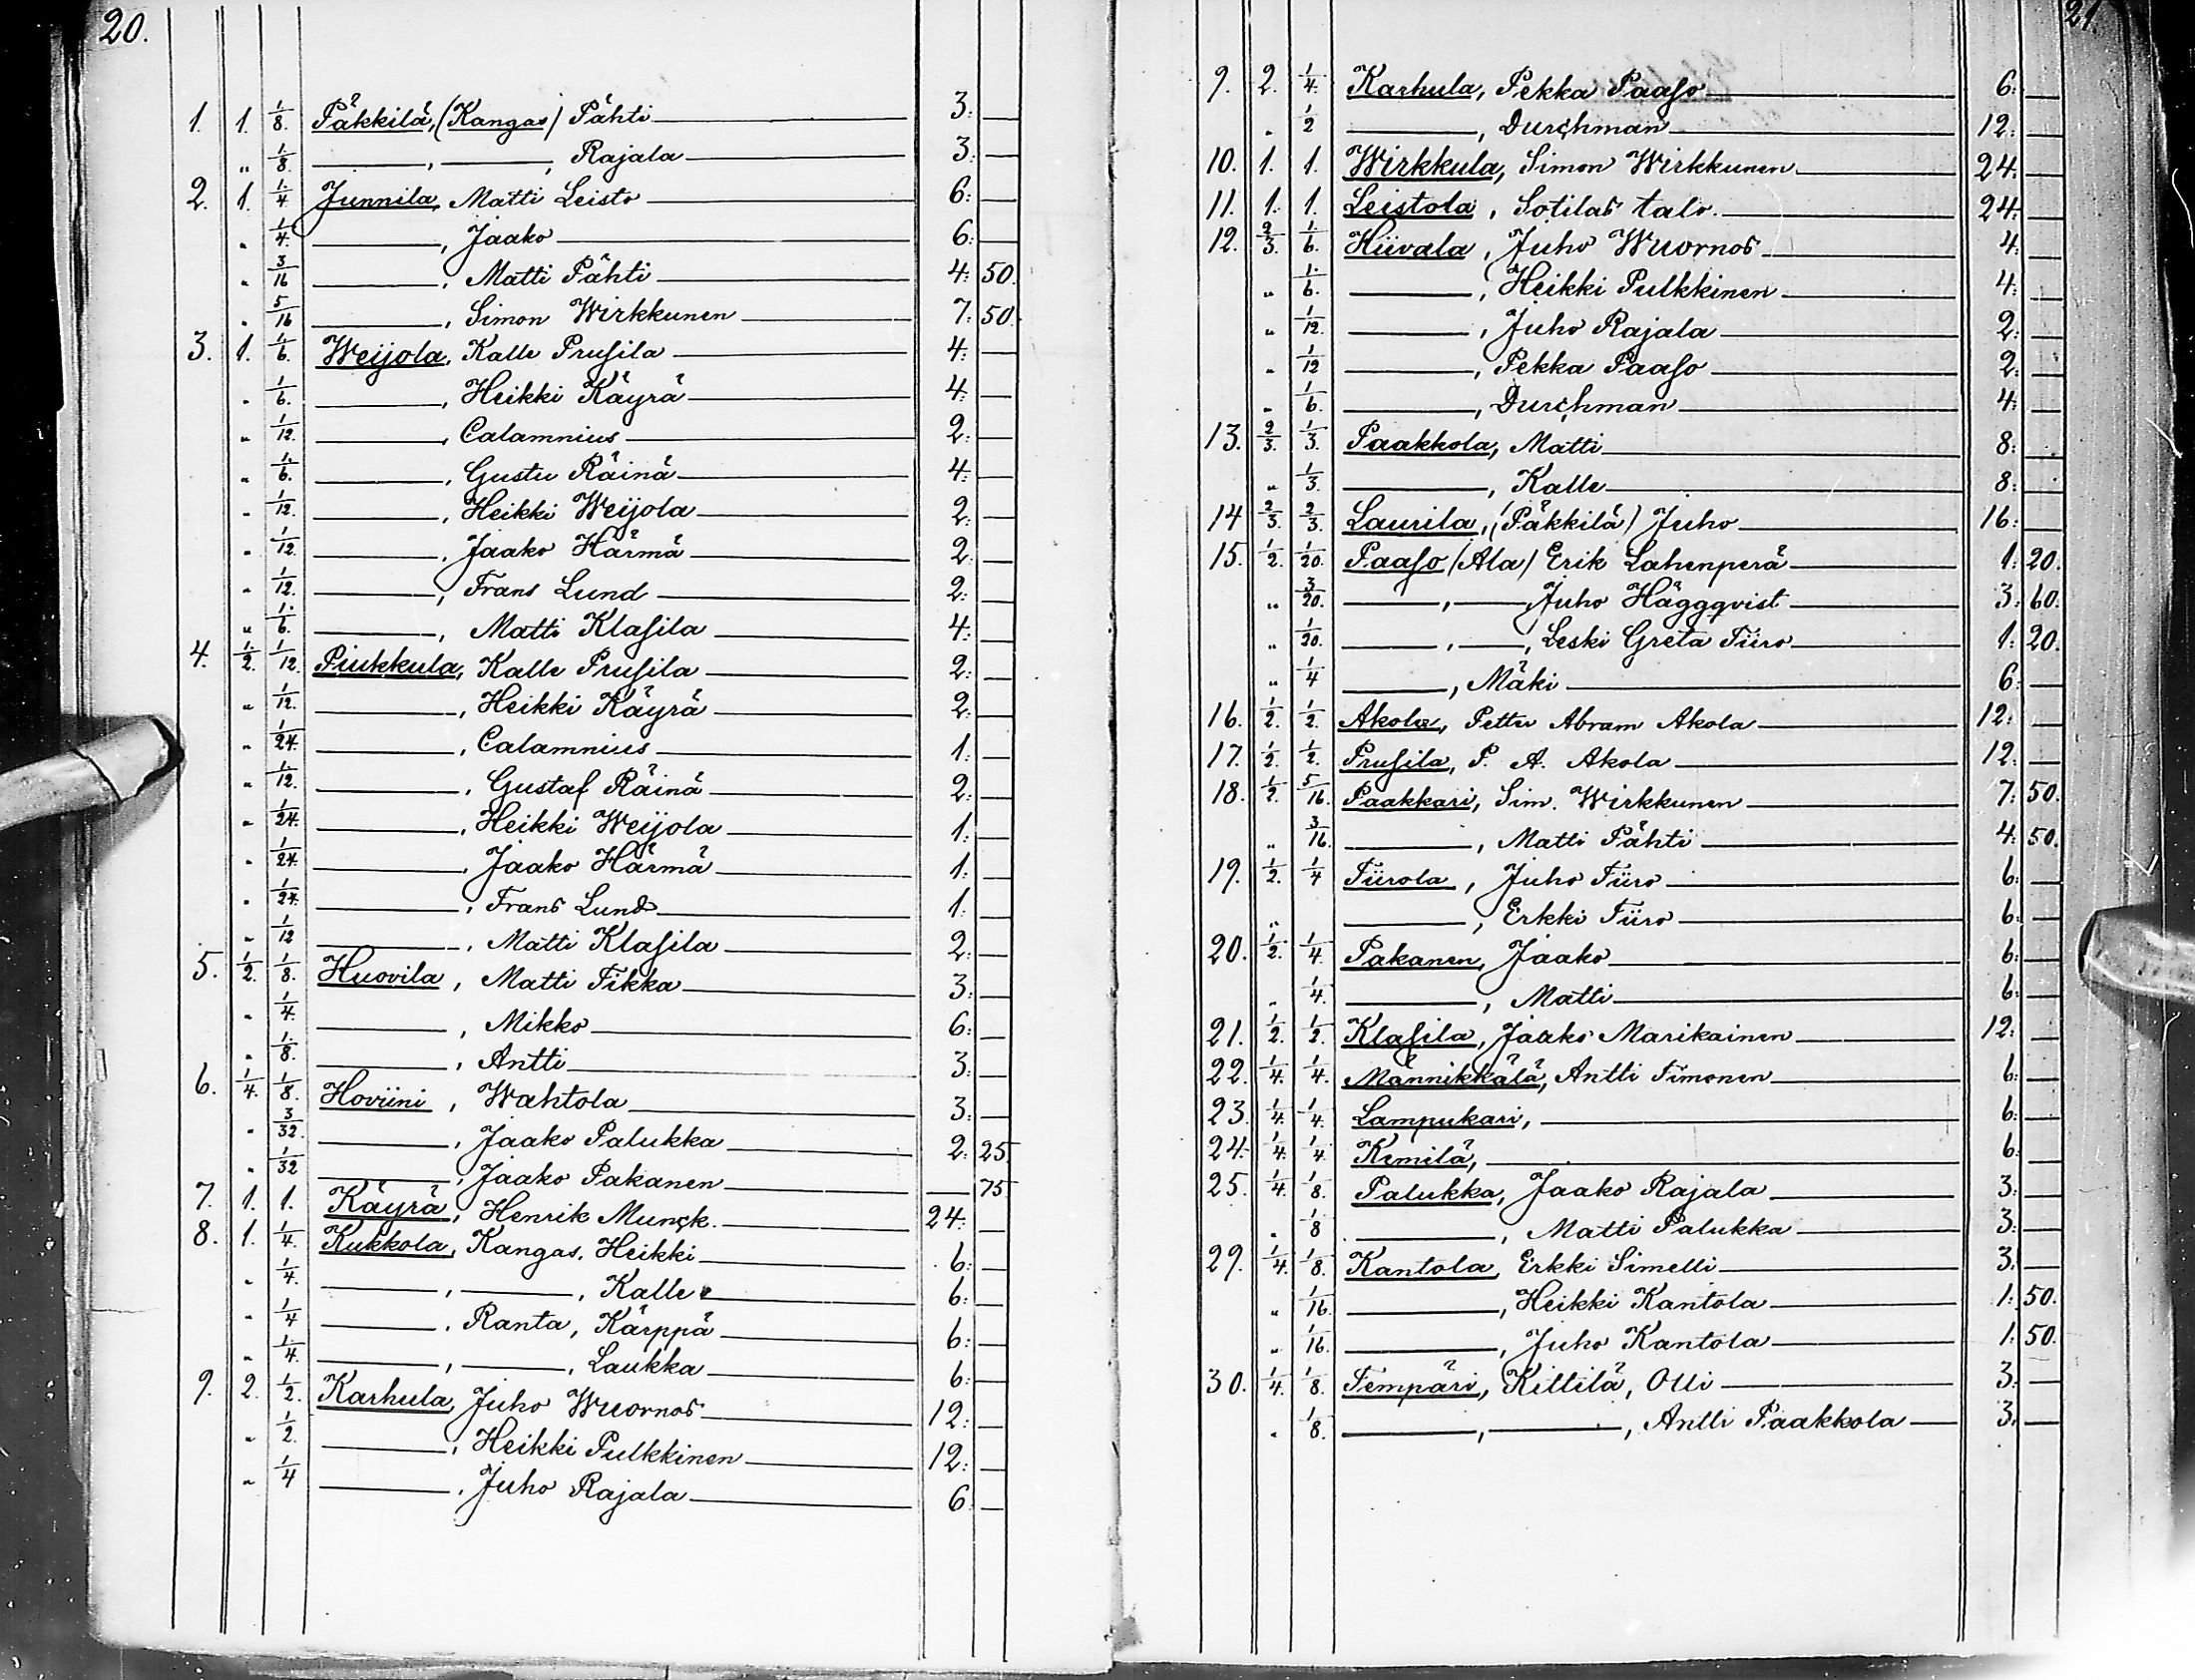 20.
1. 1. 1/8. Päkkilä, (Kangas) Pähti — 3: —
„ 1/8. —, —, Rajala — 3: —
2. 1. 1/4. Junnila, Matti Leisto — 6: —
„ 1/4. —, Jaako — 6: —
„ 3/16 —, Matti Pähti — 4: 50.
„ 5/16 —, Simon Wirkkunen — 7: 50.
3. 1. 1/6. Weijola, Kalle Prusila — 4: —
„ 1/6. —, Heikki Käyrä — 4: —
„ 1/12. —, Calamnius — 2: —
„ 1/6. —, Gustu Räinä — 4: —
„ 1/12. —, Heikki Weijola — 2: —
„ 1/12. —, Jaako Härmä — 2: —
„ 1/12. —, Frans Lund — 2: —
„ 1/6. —, Matti Klasila — 4: —
4. 1/2. 1/12. Piukkula, Kalle Prusila — 2: —
„ 1/12. —, Heikki Käyrä — 2: —
„ 1/24. —, Calamnius — 1: —
„ 1/12. —, Gustaf Räinä — 2: —
„ 1/24. —, Heikki Weijola — 1: —
„ 1/24. —, Jaako Härmä — 1: —
„ 1/24. —, Frans Lund — 1: —
„ 1/12 —, Matti Klasila — 2: —
5. 1/2. 1/8. Huovila, Matti Tikka — 3: —
„ 1/4. —, Mikko — 6: —
„ 1/8. —, Antti — 3: —
6. 1/4. 1/8. Hoviini, Wahtola — 3: —
„ 3/32. —, Jaako Palukka — 2: 25.
„ 1/32 —, Jaako Pakanen — 75
7. 1. 1. Käyrä, Henrik Munck. — 24: —
8. 1. 1/4. Kukkola, Kangas, Heikki — 6: —
„ 1/4. —, —, Kalle — 6: —
„ 1/4 —, Ranta, Kärppä — 6: —
„ 1/4. —, —, Laukka — 6: —
9. 2. 1/2. Karhula, Juho Wuornos — 12: —
„ 1/2. —, Heikki Pulkkinen — 12: —
„ 1/4 —, Juho Rajala — 6: —
21.
9. 2. 1/4. Karhula, Pekka Paaso — 6: —
„ 1/2 —, Durchman — 12: —
10. 1. 1. Wirkkula, Simon Wirkkunen — 24: —
11. 1. 1. Leistola, Sotilas talo. — 24: —
12. 2/3. 1/6. Hiivala, Juho Wuornos — 4: —
„ 1/6. —, Heikki Pulkkinen — 4: —
„ 1/12. —, Juho Rajala — 2: —
„ 1/12 —, Pekka Paaso — 2: —
„ 1/6. —, Durchman — 4: —
13. 2/3. 1/3. Paakkola, Matti — 8: —
„ 1/3. —, Kalle — 8: —
14 2/3. 2/3. Laurila, (Päkkilä) Juho — 16: —
15. 1/2. 1/20. Paaso (Ala) Erik Lahenperä — 1: 20.
„ 3/20. —, —, Juho Häggqvist — 3: 60.
„ 1/20. —, —, Leski Greta Tiiro — 1: 20.
„ 1/4 —, Mäki — 6: —
16. 1/2. 1/2. Akola, Pettu Abram Akola — 12: —
17. 1/2. 1/2. Prusila, P. A. Akola — 12: —
18. 1/2. 5/16. Paakkari, Sim. Wirkkunen — 7: 50.
„ 3/16. —, Matti Pähti — 4: 50.
19. 1/2. 1/4 Tiirola, Juho Tiiro — 6: —
„ —, Erkki Tiiro — 6: —
20. 1/2. 1/4. Pakanen, Jaako — 6: —
„ 1/4. —, Matti — 6: —
21. 1/2. 1/2. Klasila, Jaako Marikainen — 12: —
22. 1/4. 1/4. Männikkälä, Antti Timonen — 6: —
23. 1/4. 1/4. Lampukari, — 6: —
24. 1/4. 1/4. Kemilä, — 6: —
25. 1/4. 1/8. Palukka, Jaako Rajala — 3: —
„ 1/8 —, Matti Palukka — 3: —
29. 1/4. 1/8. Kantola, Erkki Simelli — 3: —
„ 1/16. —, Heikki Kantola — 1: 50.
„ 1/16. —, Juho Kantola — 1: 50.
30. 1/4. 1/8. Tempäri, Kittilä, Olli — 3: —
„ 1/8. —, —, Antti Paakkola — 3: —